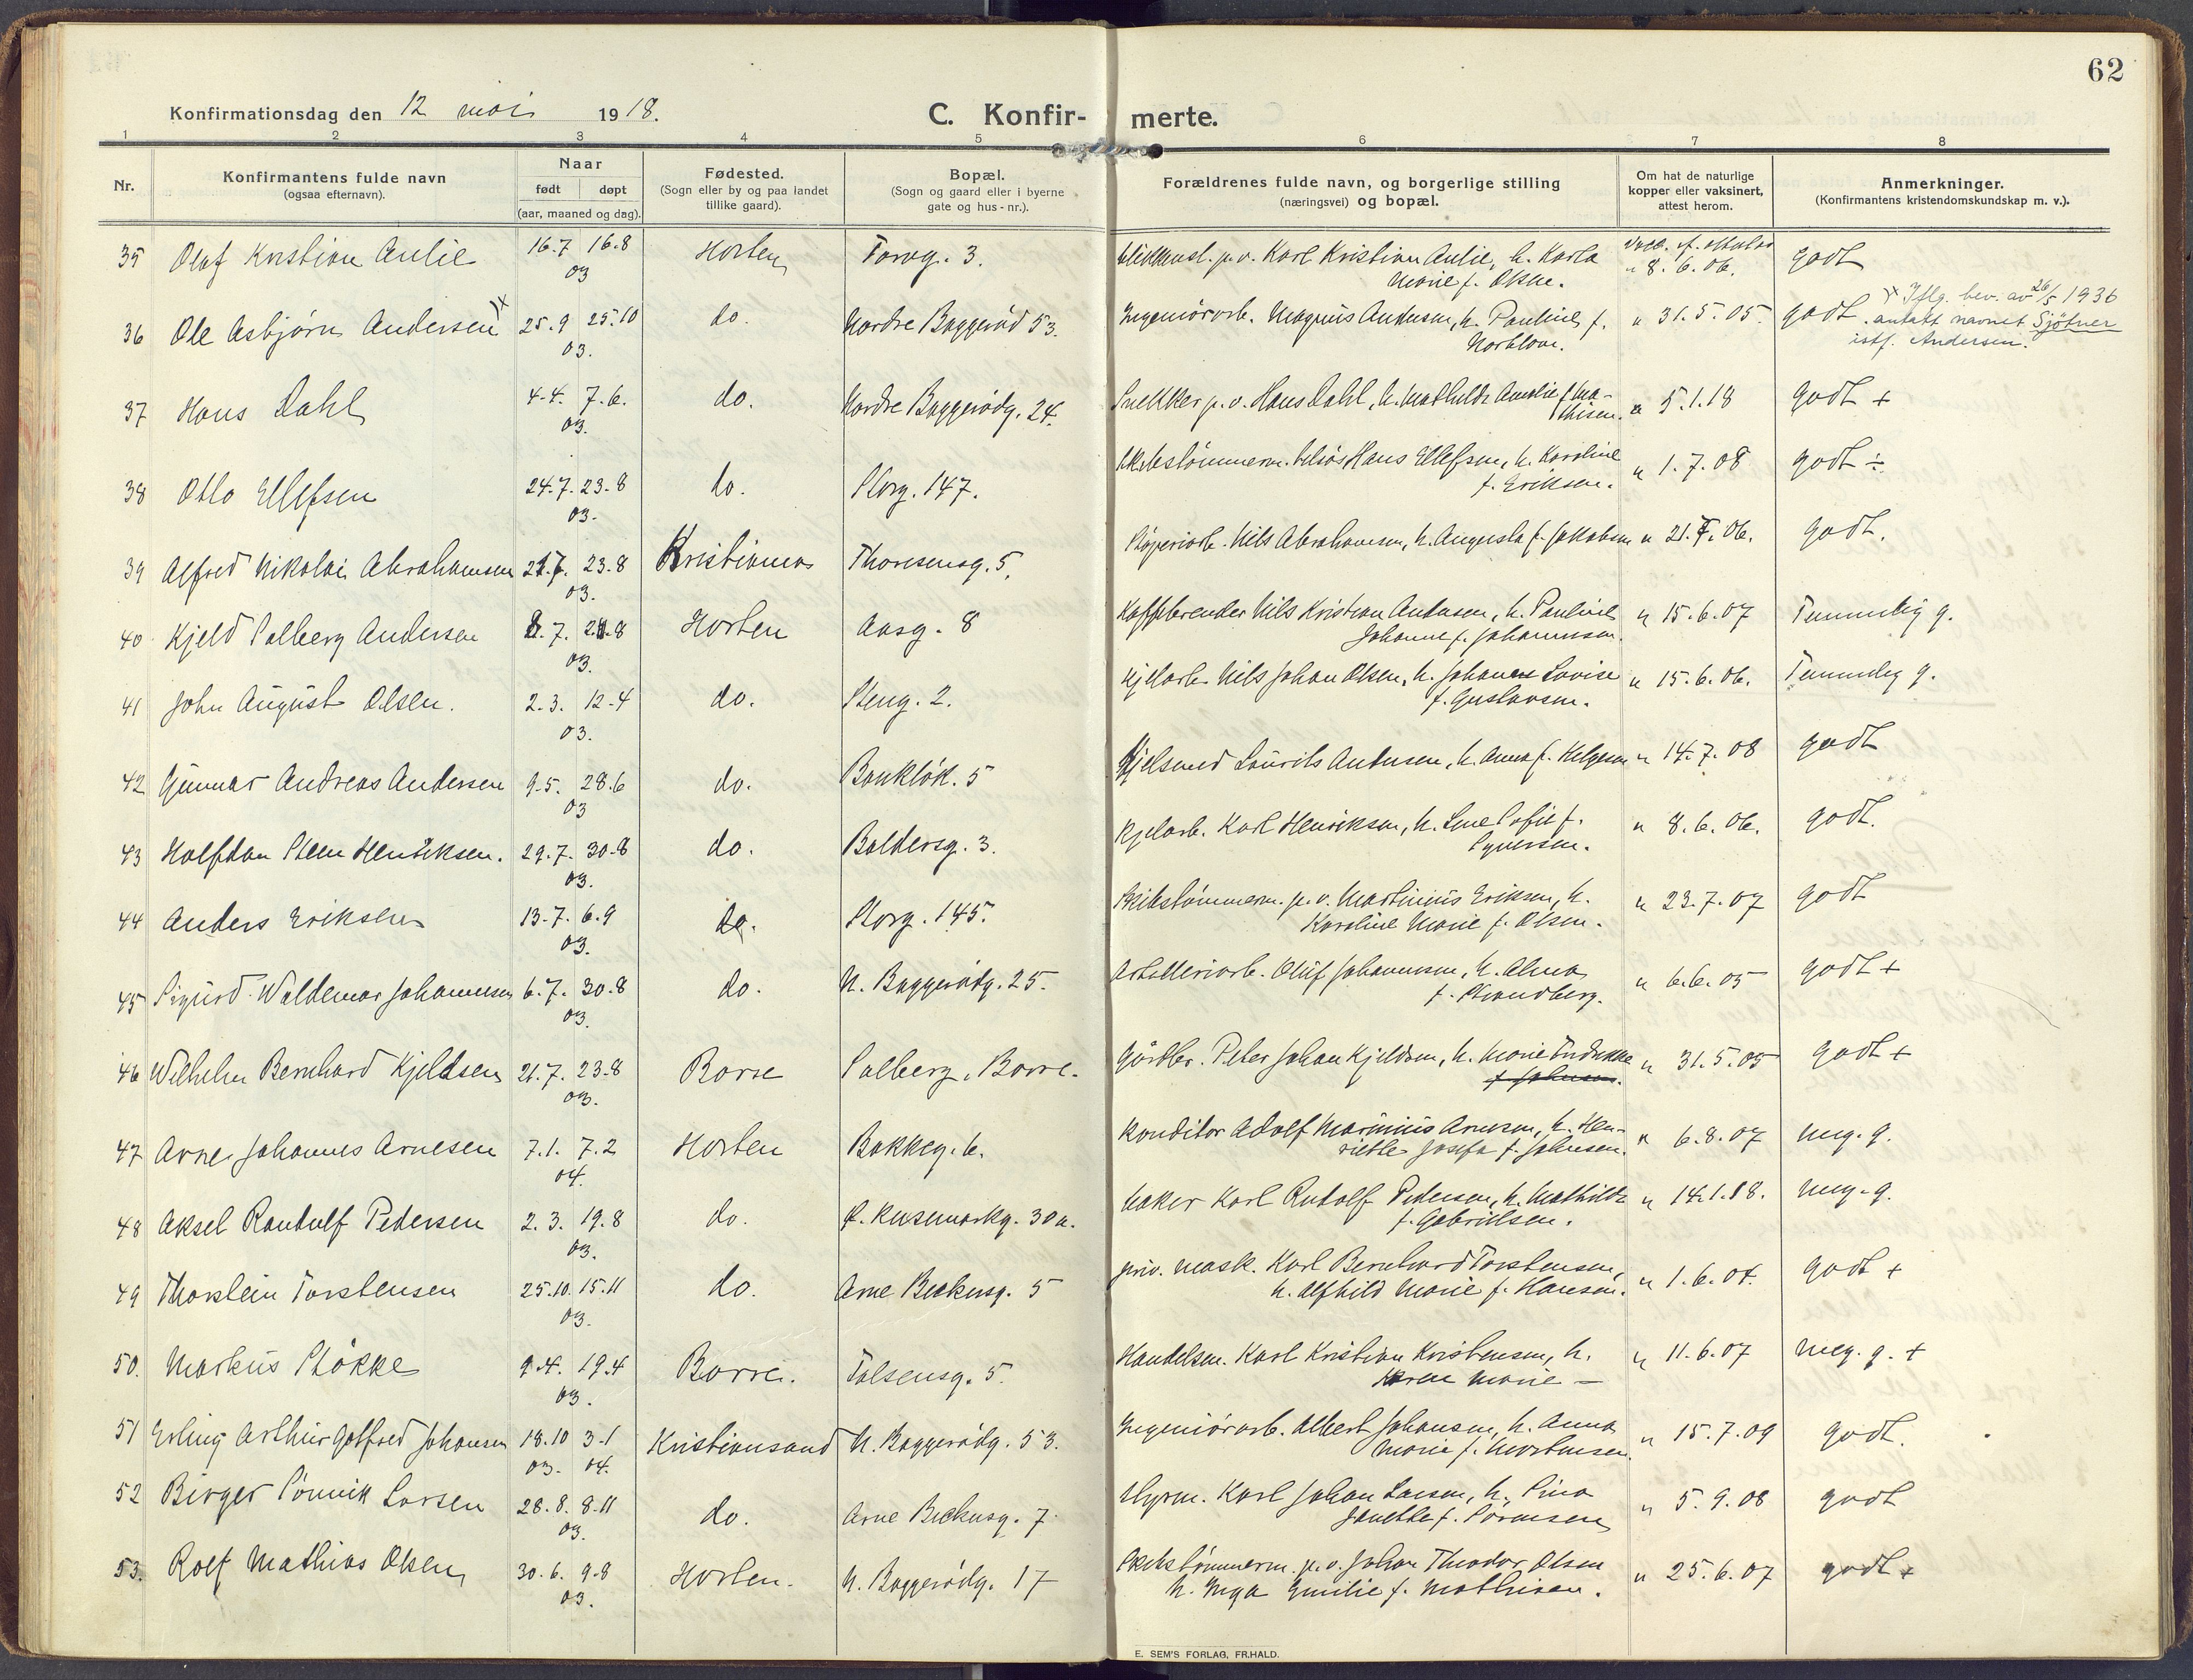 62
Konfirmationsdag den 12 mai 1918.
C. Konfir- merte.
1 2 3 4 5 6 7 8
Nr.
Konfirmantens fulde navn
(ogsaa efternavn).
Naar
født døpt
(aar, maaned og dag).
Fødested.
(Sogn eller by og paa landet
tillike gaard).
Bopæl.
(Sogn og gaard eller i byerne
gate og hus-nr.).
Forældrenes fulde navn, og borgerlige stilling
(næringsvei) og bopæl.
Om hat de naturlige
kopper eller vaksinert,
attest herom.
Anmerkninger.
(Konfirmantens kristendomskundskap m. v.).
35 Olaf Kristian Aulie 16.7 16.8 Horten Torvg. 3. p.v. Karl Kristian Aulie, h. Karla godt
03 Marie f. " 8.6.06.
36 Ole Asbjørn Andersen x 25.9 25.10 do. Nordre Baggerød 53. Ingeniörarb. Magnus Andersen, h. Pauline f. " 31.5.05 godt x Iflg. bev. av 26/5 1936
03. antatt navnet Sjötner
istf. Andersen.
37 Hans Dahl 4.4. 7.6. do. Nordre Baggerödg. 24. Snekker p.v. Hans Dahl, h. Mathilde Amalie f. Ma- " 5.1.18 godt +
03. thisen.
38 Otto Ellefsen 24.7. 23.8 do. Storg. 147. Hans Ellefsen, h. Karoline " 1.7.08 godt ÷
03. f. Eriksen.
39 Alfred Nikolai Abrahamsen 21.7. 23.8 Kristiania Thoresensg. 5. Støperiarb. Nils Abrahamsen, h. Augusta f. Jakobsen " 21.7.06. godt.
03.
40 Kjeld Solberg Andersen 8.7. 8 Horten Aasg. 8 Kaffebrender Nils Kristian Andersen, h. Pauline " 15.6.07 Temmelig g.
03. Johanne f. Johannesen.
41 John August Olsen. 2.3. 12.4 do. Steng. 2. Kjelarb. Nils Johan Olsen, h. Johanne Lovise " 15.6.06. Temmelig g.
03. f. Gustavsen.
42 Gunnar Andreas Andersen 9.5. 28.6 do. Bankløk. 5 Kjelsmed Laurits Andersen, h. Anna f. Helgesen " 14.7.08 godt
03
43 Halfdan Steen Henriksen. 29.7. 30.8 do. Baldersg. 3. Kjelarb. Karl Henriksen, h. Line Sofie f. " 8.6.06. godt.
03. Syversen.
44 Anders Eriksen 13.7. 6.9 do. Storg. 145. Skibstømmerm. p.v. Martinius Eriksen, h. " 23.7.07 godt
03. Karoline Marie f. Olsen.
45 Sigurd Waldemar Johannesen 6.7. 30.8 do. N. Baggerödg. 25. Artilleriarb. Oluf Johannesen, h. Alma " 6.6.05 godt +
03. f. Strandberg.
46 Wilhelm Bernhard Kjeldsen 21.7. 23.8 Borre Solberg, Borre. Gårdbr. Peter Johan Kjeldsen, h. Marie Fredrikke " 31.5.05 godt +
03. f. Johnsen.
47 Arne Johannes Arnesen 7.1. 7.2 Horten Bakkeg. 6. Konditor Adolf Marinius Arnesen, h. Hen- " 6.8.07 meg. g.
04. riette Josefa f. Johnsen.
48 Aksel Randulf Pedersen 2.3. 19.8 do. f. Rusemarkg. 30 a. Baker Karl Rudolf Pedersen, h. Mathilde " 14.1.18. meg. g.
03. f. Gabrielsen.
49 Thorstein Torstensen 25.10. 15.11 do. Arne Biekusg. 5 priv. mask. Karl Bernhard Torstensen, " 1.6.04. godt +
03. h. Alfhild Marie f. Hansen.
50. Markus Støkke 9.4. 19.4 Borre. Falsensg. 5. Handelsm. Karl Kristian Kristensen, h. " 11.6.07 meg. g. +
03. Karen Marie —
51 Erling Arthur Gotfred Johansen 18.10 3.1 Kristiansand N. Baggerødg. 53. Ingeniörarb. Albert Johansen, h. Anna " 15.7.09 godt.
03. 04. Marie f. Mortensen.
52 Birger Sönnik Larsen 28.8. 8.11 do. Arne Biekusg. 7 Styrm. Karl Johan Larsen, h. Sina " 5.9.08 godt
03. Janette f. Sörensen
53. Rolf Mathias Olsen 30.6. 9.8 Horten. N. Baggerödg. 17 Skibstømmerm. p.v. Johan Theodor Olsen " 25.6.07 godt +
03. h. Inga Emilie f. Mathisen.
E. SEM'S FORLAG, FR.HALD.